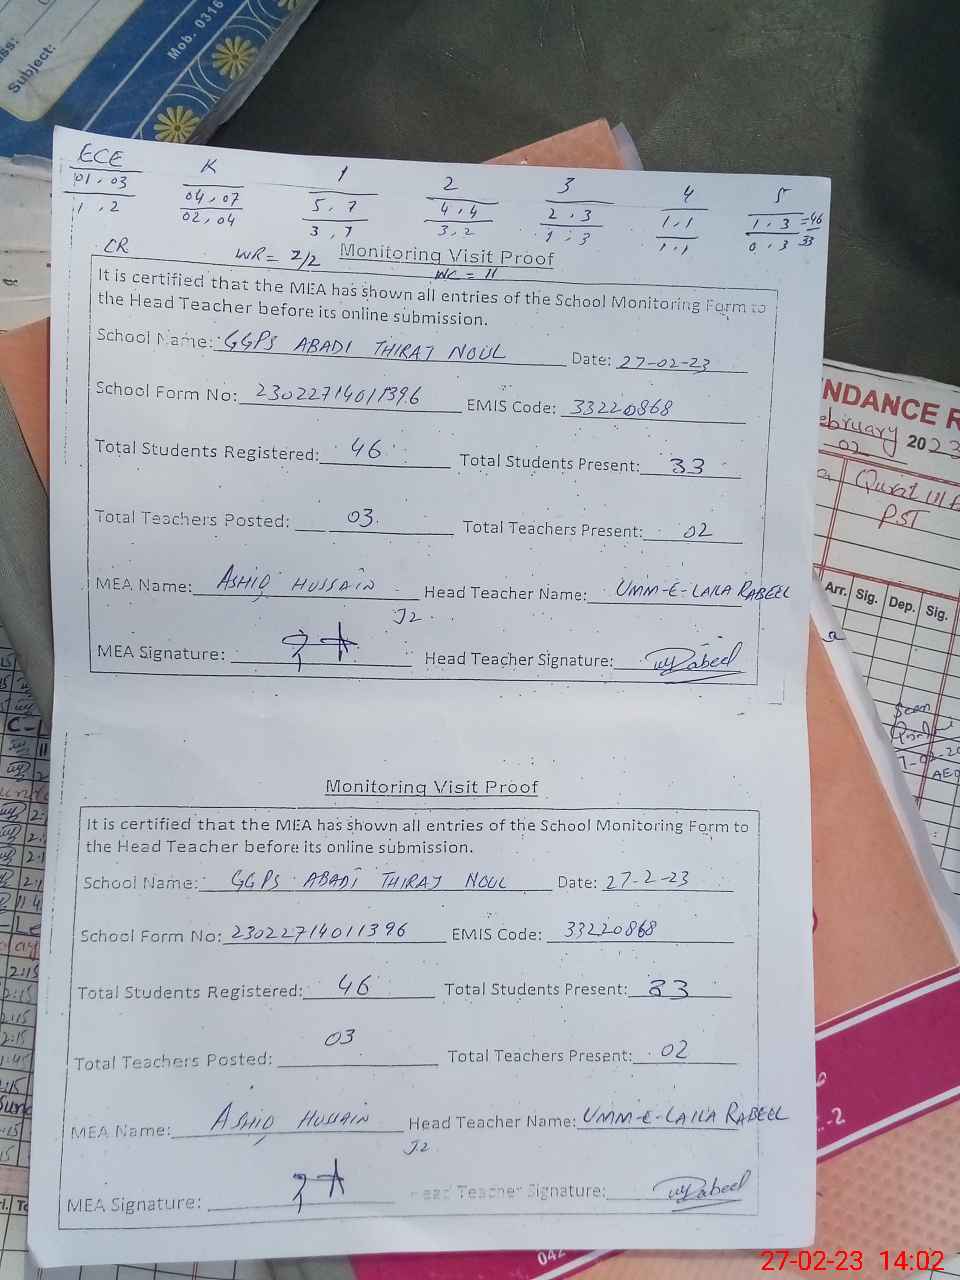 Subject:
Mob. 0316
ECE K 1 2 3 4 5
01,03 04,07 5,7 4,4 2,3 1,1 1,3 =46
1,2 02,04 3,7 3,2 1,3 1,1 0,3 33
CR WR= 2/2 Monitoring Visit Proof
WC = 11
It is certified that the MEA has shown all entries of the School Monitoring Form to
the Head Teacher before its online submission.
School Name: GGPS ABADI THIRAJ NOUL Date: 27-02-23
School Form No: 23022714011396 EMIS Code: 33220868
Total Students Registered: 46 Total Students Present: 33
Total Teachers Posted: 03 Total Teachers Present: 02
MEA Name: ASHIQ HUSSAIN Head Teacher Name: UMM-E-LAILA RABEEL
J2
MEA Signature: Head Teacher Signature: Rabeel
Monitoring Visit Proof
It is certified that the MEA has shown all entries of the School Monitoring Form to
the Head Teacher before its online submission.
School Name: GGPS ABADI THIRAJ NOUL Date: 27-2-23
School Form No: 23022714011396 EMIS Code: 33220868
Total Students Registered: 46 Total Students Present: 33
Total Teachers Posted: 03 Total Teachers Present: 02
MEA Name: ASHIQ HUSSAIN Head Teacher Name: UMM-E-LAILA RABEEL
J2
MEA Signature: Head Teacher Signature: Rabeel
NDANCE R
ebruary 2023
02
PST
Arr. Sig. Dep. Sig.
Seen
AEO
042
27-02-23 14:02